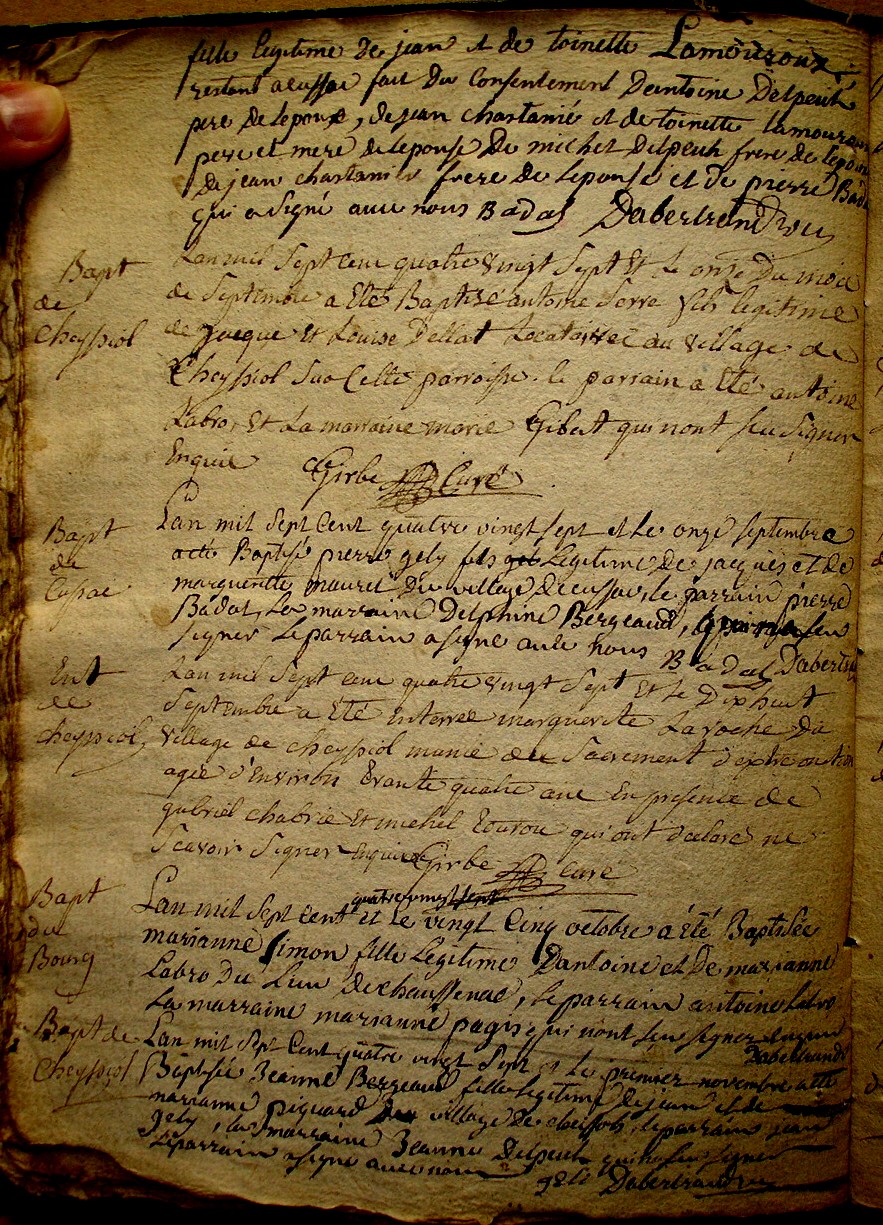 fille legitime de jean et de toinette Lamouroux
restant a cussac fait du Consentement Dantoine Delpeuh
pere de lepoux, de jean chastanié et de toinette lamouroux
pere et mere de lepouse De michel Delpeuh frere de lepoux
De jean chastanier frere de lepouse et de pierre Badal
qui a signé avec nous Badal Dabertrand
Bapt
de
Cheyssiol
Lan mil Sept Cent quatre vingt Sept Et le onze Du mois
de Septembre a Eté Baptisé antoine Serre fils legitime
de jacque Et Louise Dellat Locataires au village de
Cheyssiol Sus Cette parroisse. le parrain a Eté antoine
Labro, Et La marraine marie Gibert qui nont seu Signer
Enquis Girbe Curé
Bapt
de
Cussac
Lan mil Sept Cent quatre vingt sept et le onze septembre
a eté Baptisé pierre gely fils Legitime de jacques et de
marguerite mauret Du village de cussac, le parrain pierre
Badal, la marraine Delphine Bergeaud, seu
signer le parrain a signe avec nous Badal
Ent
de
Cheyssiol
Lan mil Sept cent quatre vingt Sept Et le Dixhuit
Septembre a Eté Enterree marguerite Laroche Du
village de Cheyssiol munie des Sacrement d'extreonction
agee d'Environ quatre ans En presence de
gabriel chabrie Et michel qui ont declaré ne
Scavoir Signer Enquis Girbe Curé
Bapt
du
Bourg
quatre vingt sept
Lan mil Sept Cent et le vingt Cinq octobre a été Baptisée
marianne Simon fille Legitime Dantoine et De marianne
Labro Du Lieu dechaussenac, le parrain antoine labro
La marraine marianne pagis qui nont seu signer
Dabertrand
Bapt de
Cheyssiol
Lan mil Sept Cent quatre vingt Sept et le premier novembre a eté
Baptisée Jeanne Bergeaud fille legitime de jean et de
marianne piguard village de, le parrain jean
gely, la marraine Jeanne Delpeuh qui na seu signer
le parrain a signe avec nous geli Dabertrand